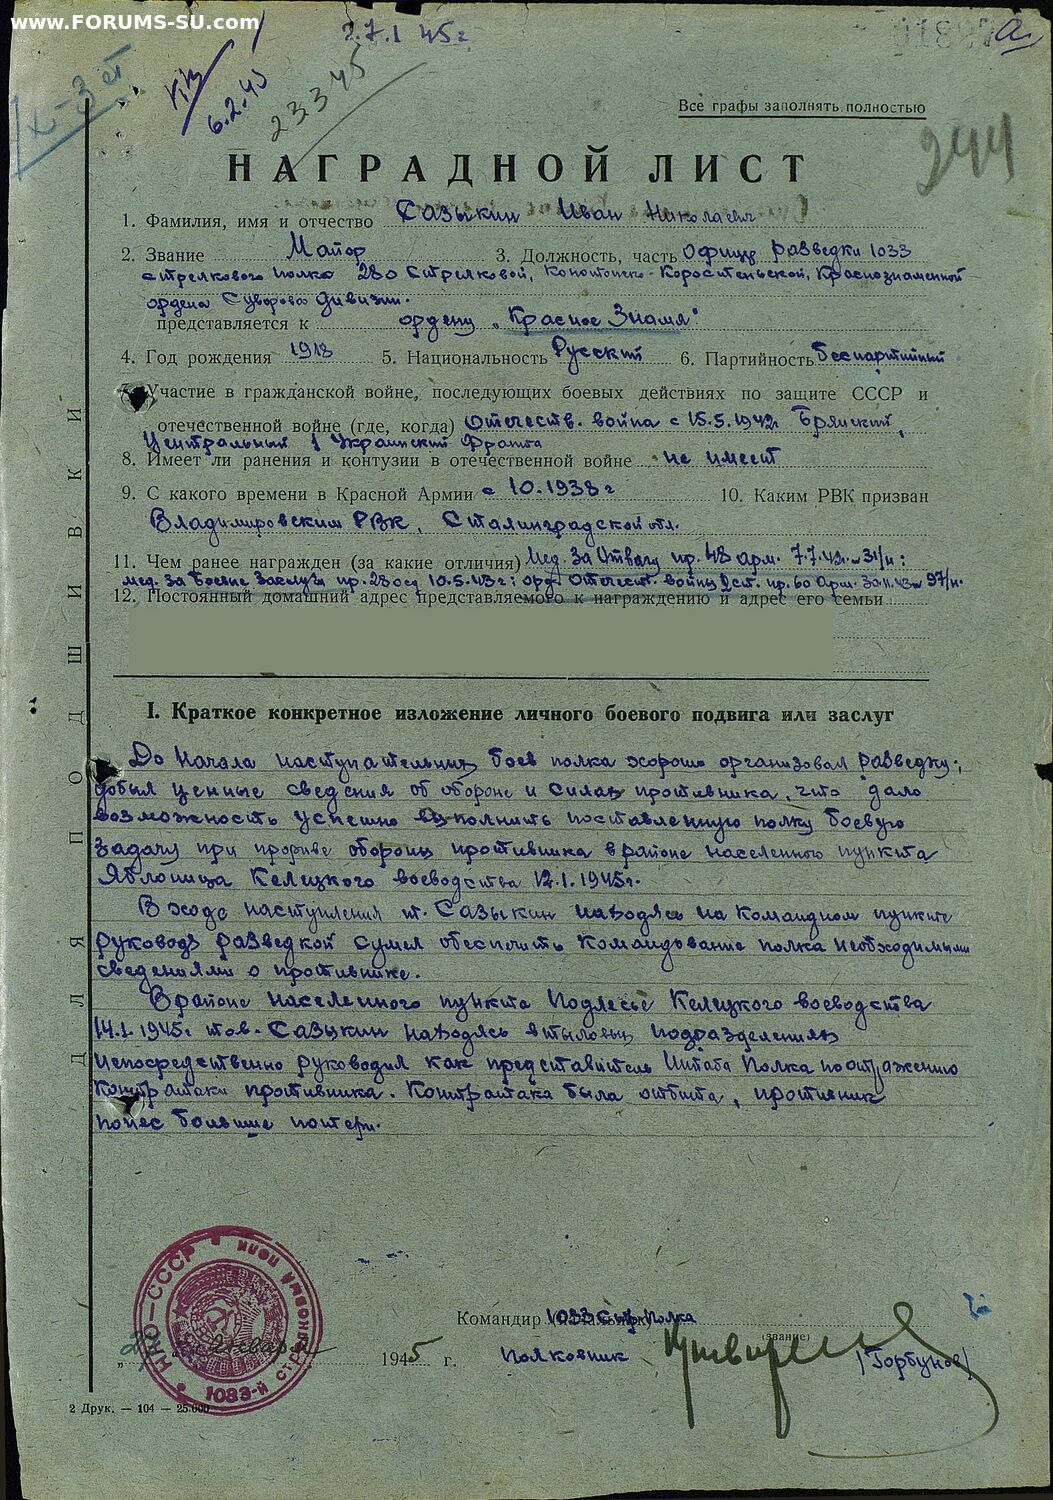 www.FORUMS-SU.com
27.1 45г
6.2.45
23345
Все графы заполнять полностью
244
НАГРАДНОЙ ЛИСТ
1. Фамилия, имя и отчество Сазыкин Иван Николаевич
2. Звание Майор 3. Должность, часть Офицер разведки 1033
стрелкового полка 280 Стрелковой, Конотопско-Коростеньской, Краснознаменной
ордена Суворова дивизии.
представляется к ордену „Красное Знамя"
4. Год рождения 1918 5. Национальность Русский 6. Партийность Беспартийный
7. Участие в гражданской войне, последующих боевых действиях по защите СССР и
отечественной войне (где, когда) Отечеств. война с 15.5.1942г Брянский,
Центральный 1 Украинский фронта
8. Имеет ли ранения и контузии в отечественной войне не имеет
9. С какого времени в Красной Армии с 10.1938г 10. Каким РВК призван
Владимировским РВК, Сталинградской обл.
11. Чем ранее награжден (за какие отличия) Мед. За Отвагу пр. 48 арм. 7.7.42г. 31/н:
мед. за Боевые Заслуги пр. 280сд 10.5.43г: орд. Отечест. войны 2ст. пр. 60 Арм. 30.11.43г 97/н.
12. Постоянный домашний адрес представляемого к награждению и адрес его семьи
I. Краткое конкретное изложение личного боевого подвига или заслуг
До начала наступательных боев полка хорошо организовал разведку;
добыл ценные сведения об обороне и силах противника, что дало
возможность успешно выполнить поставленную полку боевую
задачу при прорыве обороны противника в районе населенного пункта
Яблоница Келецкого воеводства 12.1.1945г.
В ходе наступления т. Сазыкин находясь на командном пункте
руководя разведкой сумел обеспечить командование полка необходимыми
сведениями о противнике.
В районе населенного пункта Подлесье Келецкого воеводства
14.1.1945г тов. Сазыкин находясь в тыловых подразделениях
непосредственно руководил как представитель Штаба Полка по отражению
контратаки противника. Контратака была отбита, противник
понес большие потери.
ДЛЯ ПОДШИВКИ
Командир (начальник) 1033 Стр. Полка
(звание)
НКО-СССР
1033-й
января 1945 г. полковник (Горбунов)
2 Друк. — 104 — 25.000